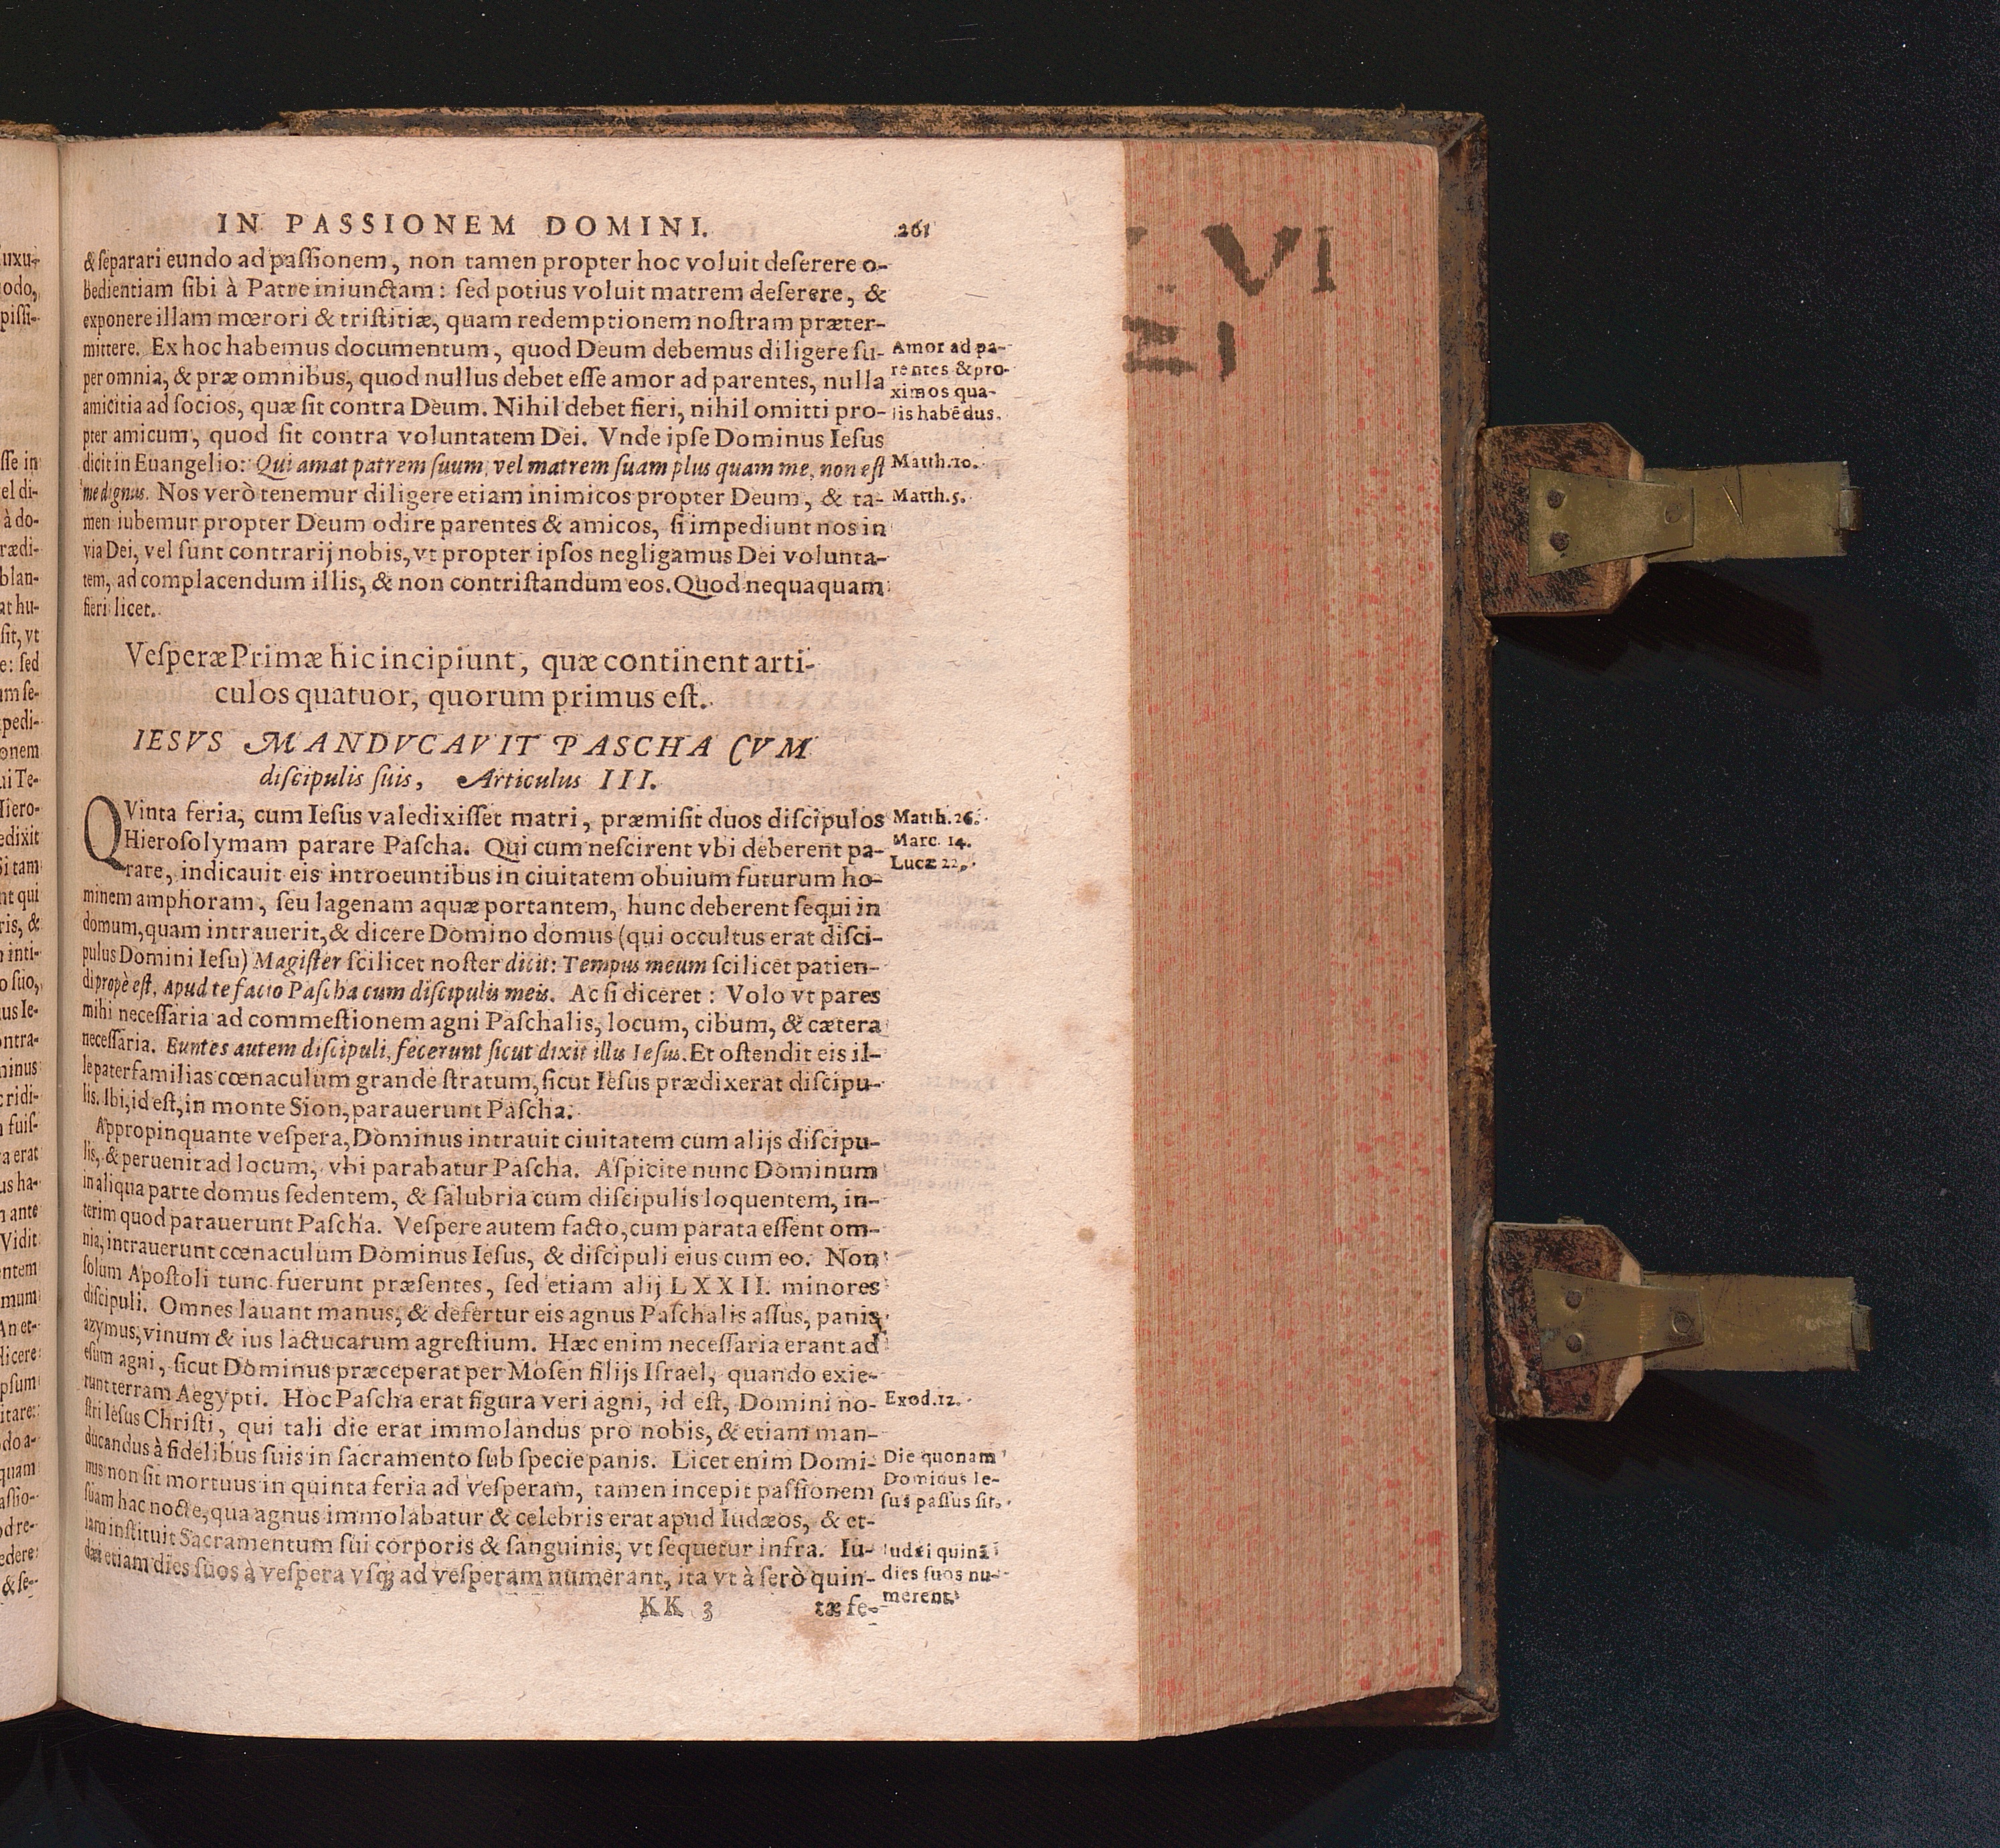 IN PASSIONEM DOMINI. 261
& ſeparari eundo ad paſſionem, non tamen propter hoc voluit deſerere o-
bedientiam ſibi à Patre iniunctam: ſed potius voluit matrem deſerere, &
exponere illam mœrori & triſtitiæ, quam redemptionem noſtram præter-
mittere. Ex hoc habemus documentum, quod Deum debemus diligere ſu-
per omnia, & præ omnibus, quod nullus debet eſſe amor ad parentes, nulla
amicitia ad ſocios, quæ ſit contra Deum. Nihil debet fieri, nihil omitti pro-
pter amicum, quod ſit contra voluntatem Dei. Vnde ipſe Dominus Ieſus
dicit in Euangelio: Qui amat patrem ſuum, vel matrem ſuam plus quam me, non eſt
me dignus. Nos verò tenemur diligere etiam inimicos propter Deum, & ta-
men iubemur propter Deum odire parentes & amicos, ſi impediunt nos in
via Dei, vel ſunt contrarij nobis, vt propter ipſos negligamus Dei volunta-
tem, ad complacendum illis, & non contriſtandum eos. Quod nequaquam
fieri licet.
Amor ad pa-
rentes & pro-
ximos qua-
lis habēdus.
Matth. 10.
Matth. 5.
Veſperæ Primæ hic incipiunt, quæ continent arti-
culos quatuor, quorum primus eſt.
IESVS MANDVCAVIT PASCHA CVM
diſcipulis ſuis, Articulus III.
QVinta feria, cum Ieſus valedixiſſet matri, præmiſit duos diſcipulos
Hieroſolymam parare Paſcha. Qui cum neſcirent vbi deberent pa-
rare, indicauit eis introeuntibus in ciuitatem obuium futurum ho-
minem amphoram, ſeu lagenam aquæ portantem, hunc deberent ſequi in
domum, quam intrauerit, & dicere Domino domus (qui occultus erat diſci-
pulus Domini Ieſu) Magiſter ſcilicet noſter dicit: Tempus meum ſcilicet patien-
di propè eſt. Apud te facio Paſcha cum diſcipulis meis. Ac ſi diceret: Volo vt pares
mihi neceſſaria ad commeſtionem agni Paſchalis, locum, cibum, & cætera
neceſſaria. Euntes autem diſcipuli, fecerunt ſicut dixit illis Ieſus. Et oſtendit eis il-
le paterfamilias cœnaculum grande ſtratum, ſicut Ieſus prædixerat diſcipu-
lis. Ibi, id eſt, in monte Sion, parauerunt Paſcha.
Appropinquante veſpera, Dominus intrauit ciuitatem cum alijs diſcipu-
lis, & peruenit ad locum, vbi parabatur Paſcha. Aſpicite nunc Dominum
in aliqua parte domus ſedentem, & ſalubria cum diſcipulis loquentem, in-
terim quod parauerunt Paſcha. Veſpere autem facto, cum parata eſſent om-
nia, intrauerunt cœnaculum Dominus Ieſus, & diſcipuli eius cum eo. Non
ſolum Apoſtoli tunc fuerunt præſentes, ſed etiam alij LXXII. minores
diſcipuli. Omnes lauant manus, & defertur eis agnus Paſchalis aſſus, panis
azymus, vinum & ius lactucarum agreſtium. Hæc enim neceſſaria erant ad
eſum agni, ſicut Dominus præceperat per Moſen filijs Iſrael, quando exie-
runt terram Aegypti. Hoc Paſcha erat figura veri agni, id eſt, Domini no-
ſtri Ieſus Chriſti, qui tali die erat immolandus pro nobis, & etiam man-
ducandus à fidelibus ſuis in ſacramento ſub ſpecie panis. Licet enim Domi-
nus non ſit mortuus in quinta feria ad veſperam, tamen incepit paſſionem
ſuam hac nocte, qua agnus immolabatur & celebris erat apud Iudæos, & et-
iam inſtituit Sacramentum ſui corporis & ſanguinis, vt ſequetur infra. Iu-
dæi etiam dies ſuos à veſpera vſq; ad veſperam numerant, ita vt à ſerò quin-
Matth. 26.
Marc. 14.
Lucæ 22.
Exod. 12.
Die quonam
Dominus Ie-
ſus paſſus ſit.
Iudæi quinā
dies ſuos nu-
merent.
KK 3 tæ fe-
uxu-
odo,
piſſi-
ſſe in
el di-
à do-
rædi-
blan-
at hu-
ſit, vt
e: ſed
um ſe-
pedi-
onem
ui Te-
Hiero-
edixit
Si tam
nt qui
ris, &
inti-
o ſuo,
us Ie-
ontra-
ninus
c ridi-
fuiſ-
a erat
us ha-
n ante
Vidit
entem
mum
An et-
dicere
pſum
itare:
do a-
quam
aſſio-
od re-
edere
& ſe-
VI